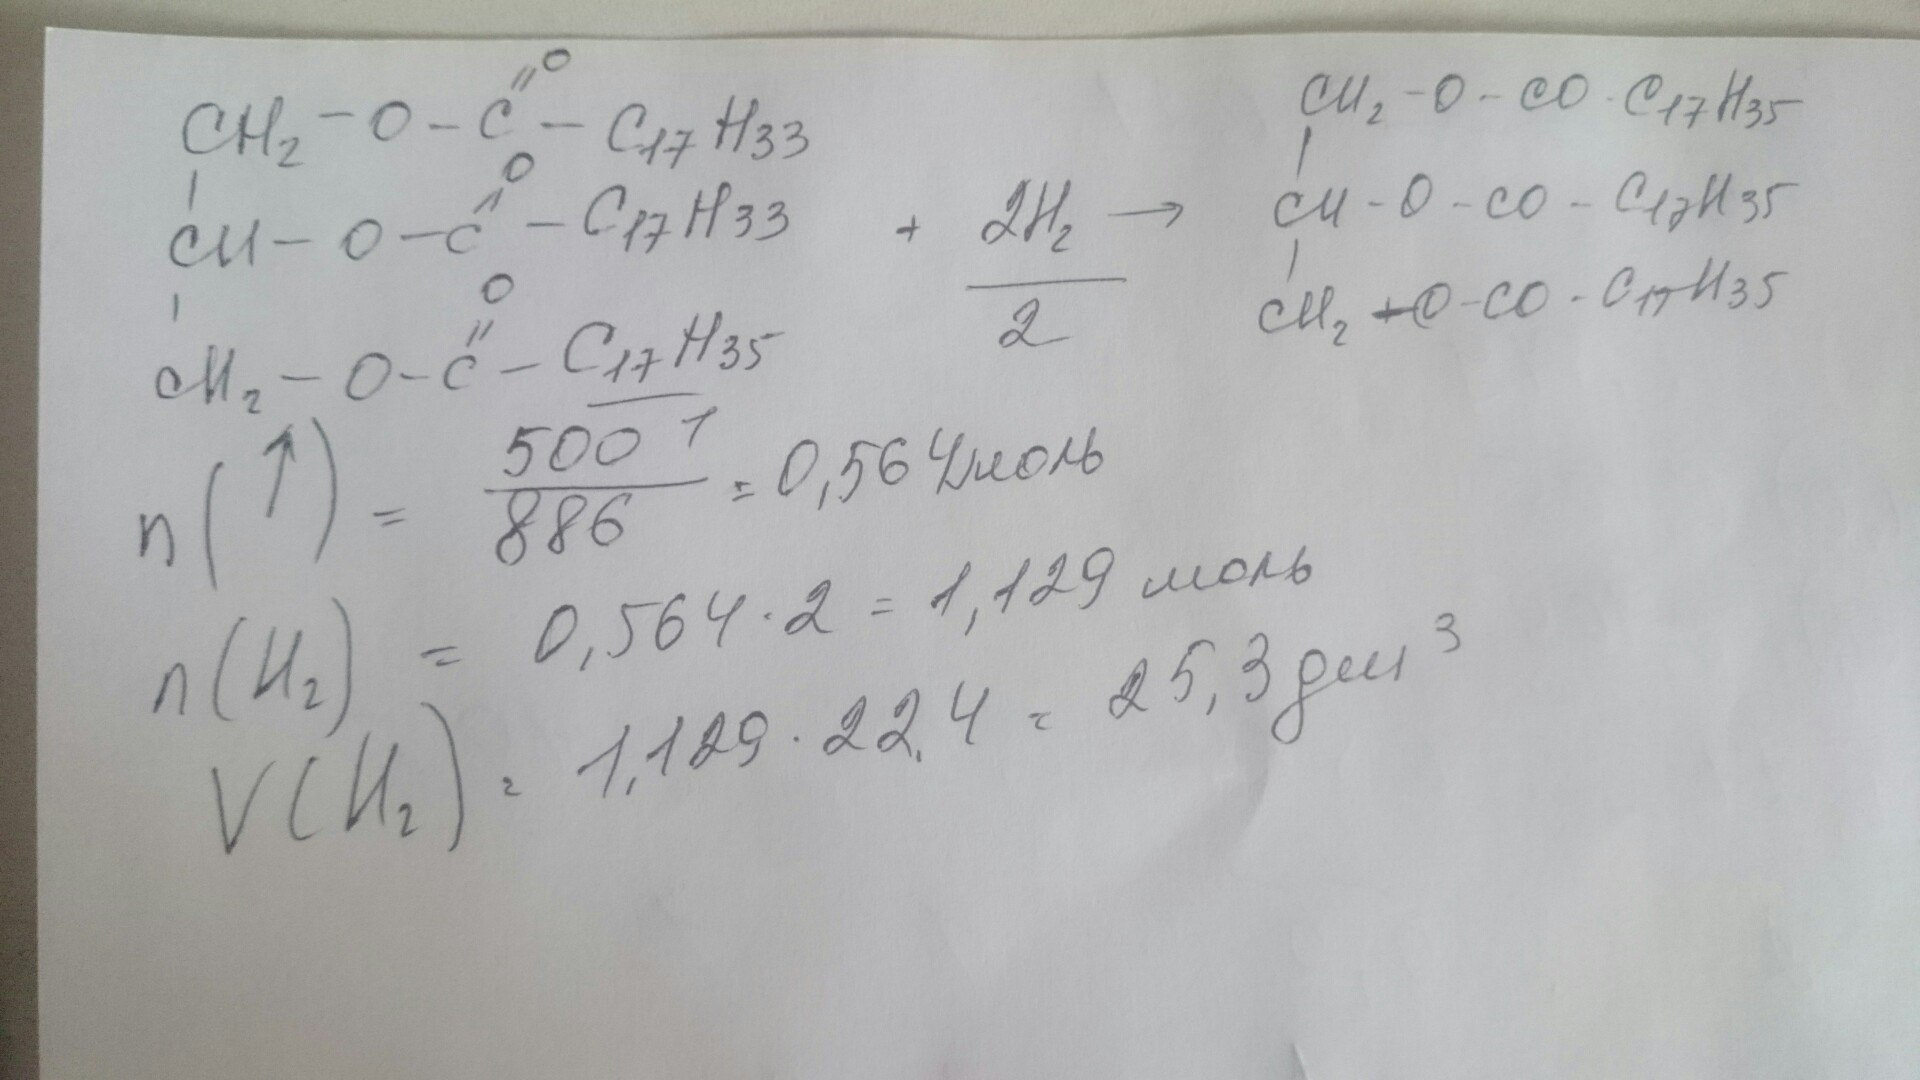 CH₂ - O - C - C₁₇H₃₃
=O
CH - O - C - C₁₇H₃₃
=O
CH₂ - O - C - C₁₇H₃₅
=O
+ 2H₂ →
2
CH₂ - O - CO - C₁₇H₃₅
CH - O - CO - C₁₇H₃₅
CH₂ - O - CO - C₁₇H₃₅
n(↑) = 500 / 886 = 0,564 моль
n(H₂) = 0,564 · 2 = 1,129 моль
V(H₂) = 1,129 · 22,4 = 25,3 дм³